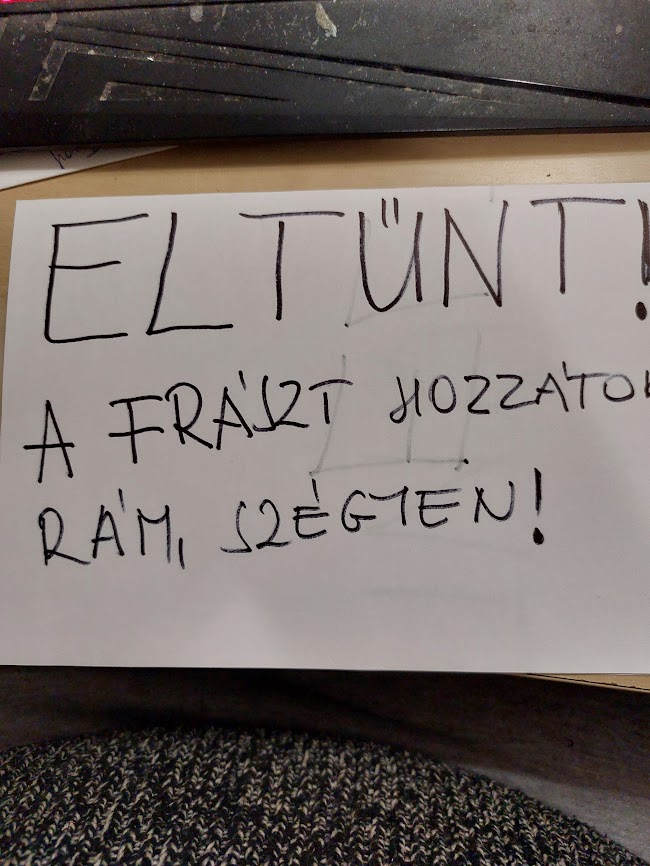 ELTŰNT!
A FRÁSZT HOZZÁTOK
RÁM, SZÉGYEN!